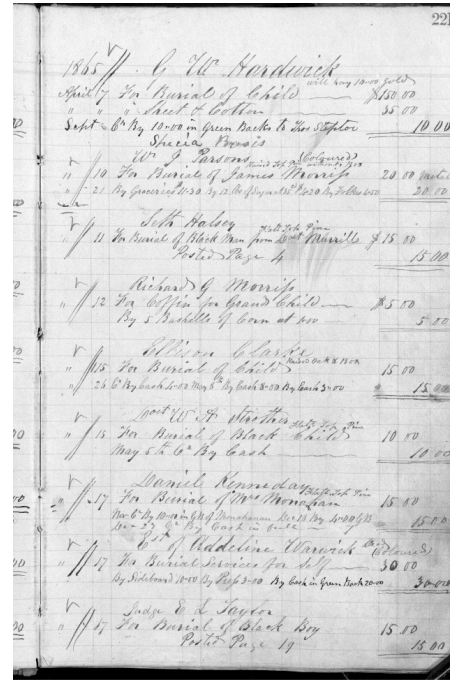 221
1865 G Wm Hardwick
will pay 10.00 Gold
April 7 For Burial of Child $150 00
" " " Sheet & Cotton 35 00
Sept Cr By 10.00 in Green Backs to Thos Steptoe 10 00
Specia Basis
Wm J Parsons (Coloured)
" 10 For Burial of James Morriss 20 00
" 21 By Groceries 11.30 By 12 20.00
Seth Halsey
Flat Top Pine
" 11 For Burial of Black Man from Doct Murrill $15 00
Posted Page 4 15 00
Richard G Morriss
" 12 For Coffin for Grand Child $5 00
By 5 Bushells of Corn at 5 00
Ellison Clarke
" 15 For Burial of Child 15 00
" 26 Cr By Cash 4.00 May 5th By Cash 8.00 By Cash 3.00 15 00
Doct W A Strother
Flat Top Pine
" 15 For Burial of Black Child 10 00
May 5th Cr By Cash 10 00
Daniel Kenneday
Flat Top Pine
" 17 For Burial of Mrs Monahan 15 00
Nov 6th By 10.00 in GB of Monahanan Dec 23 By 4.00 GB 15 00
Dec 27 Cr By Cash in full
Est of Addeline Warwick (Coloured)
" 17 For Burial Services for Self 30 00
By Sideboard 10.00 By 3.00 By Cash in Green Back 20.00 30.00
Judge E L Taylor
" 17 For Burial of Black Boy 15 00
Posted Page 19 15 00